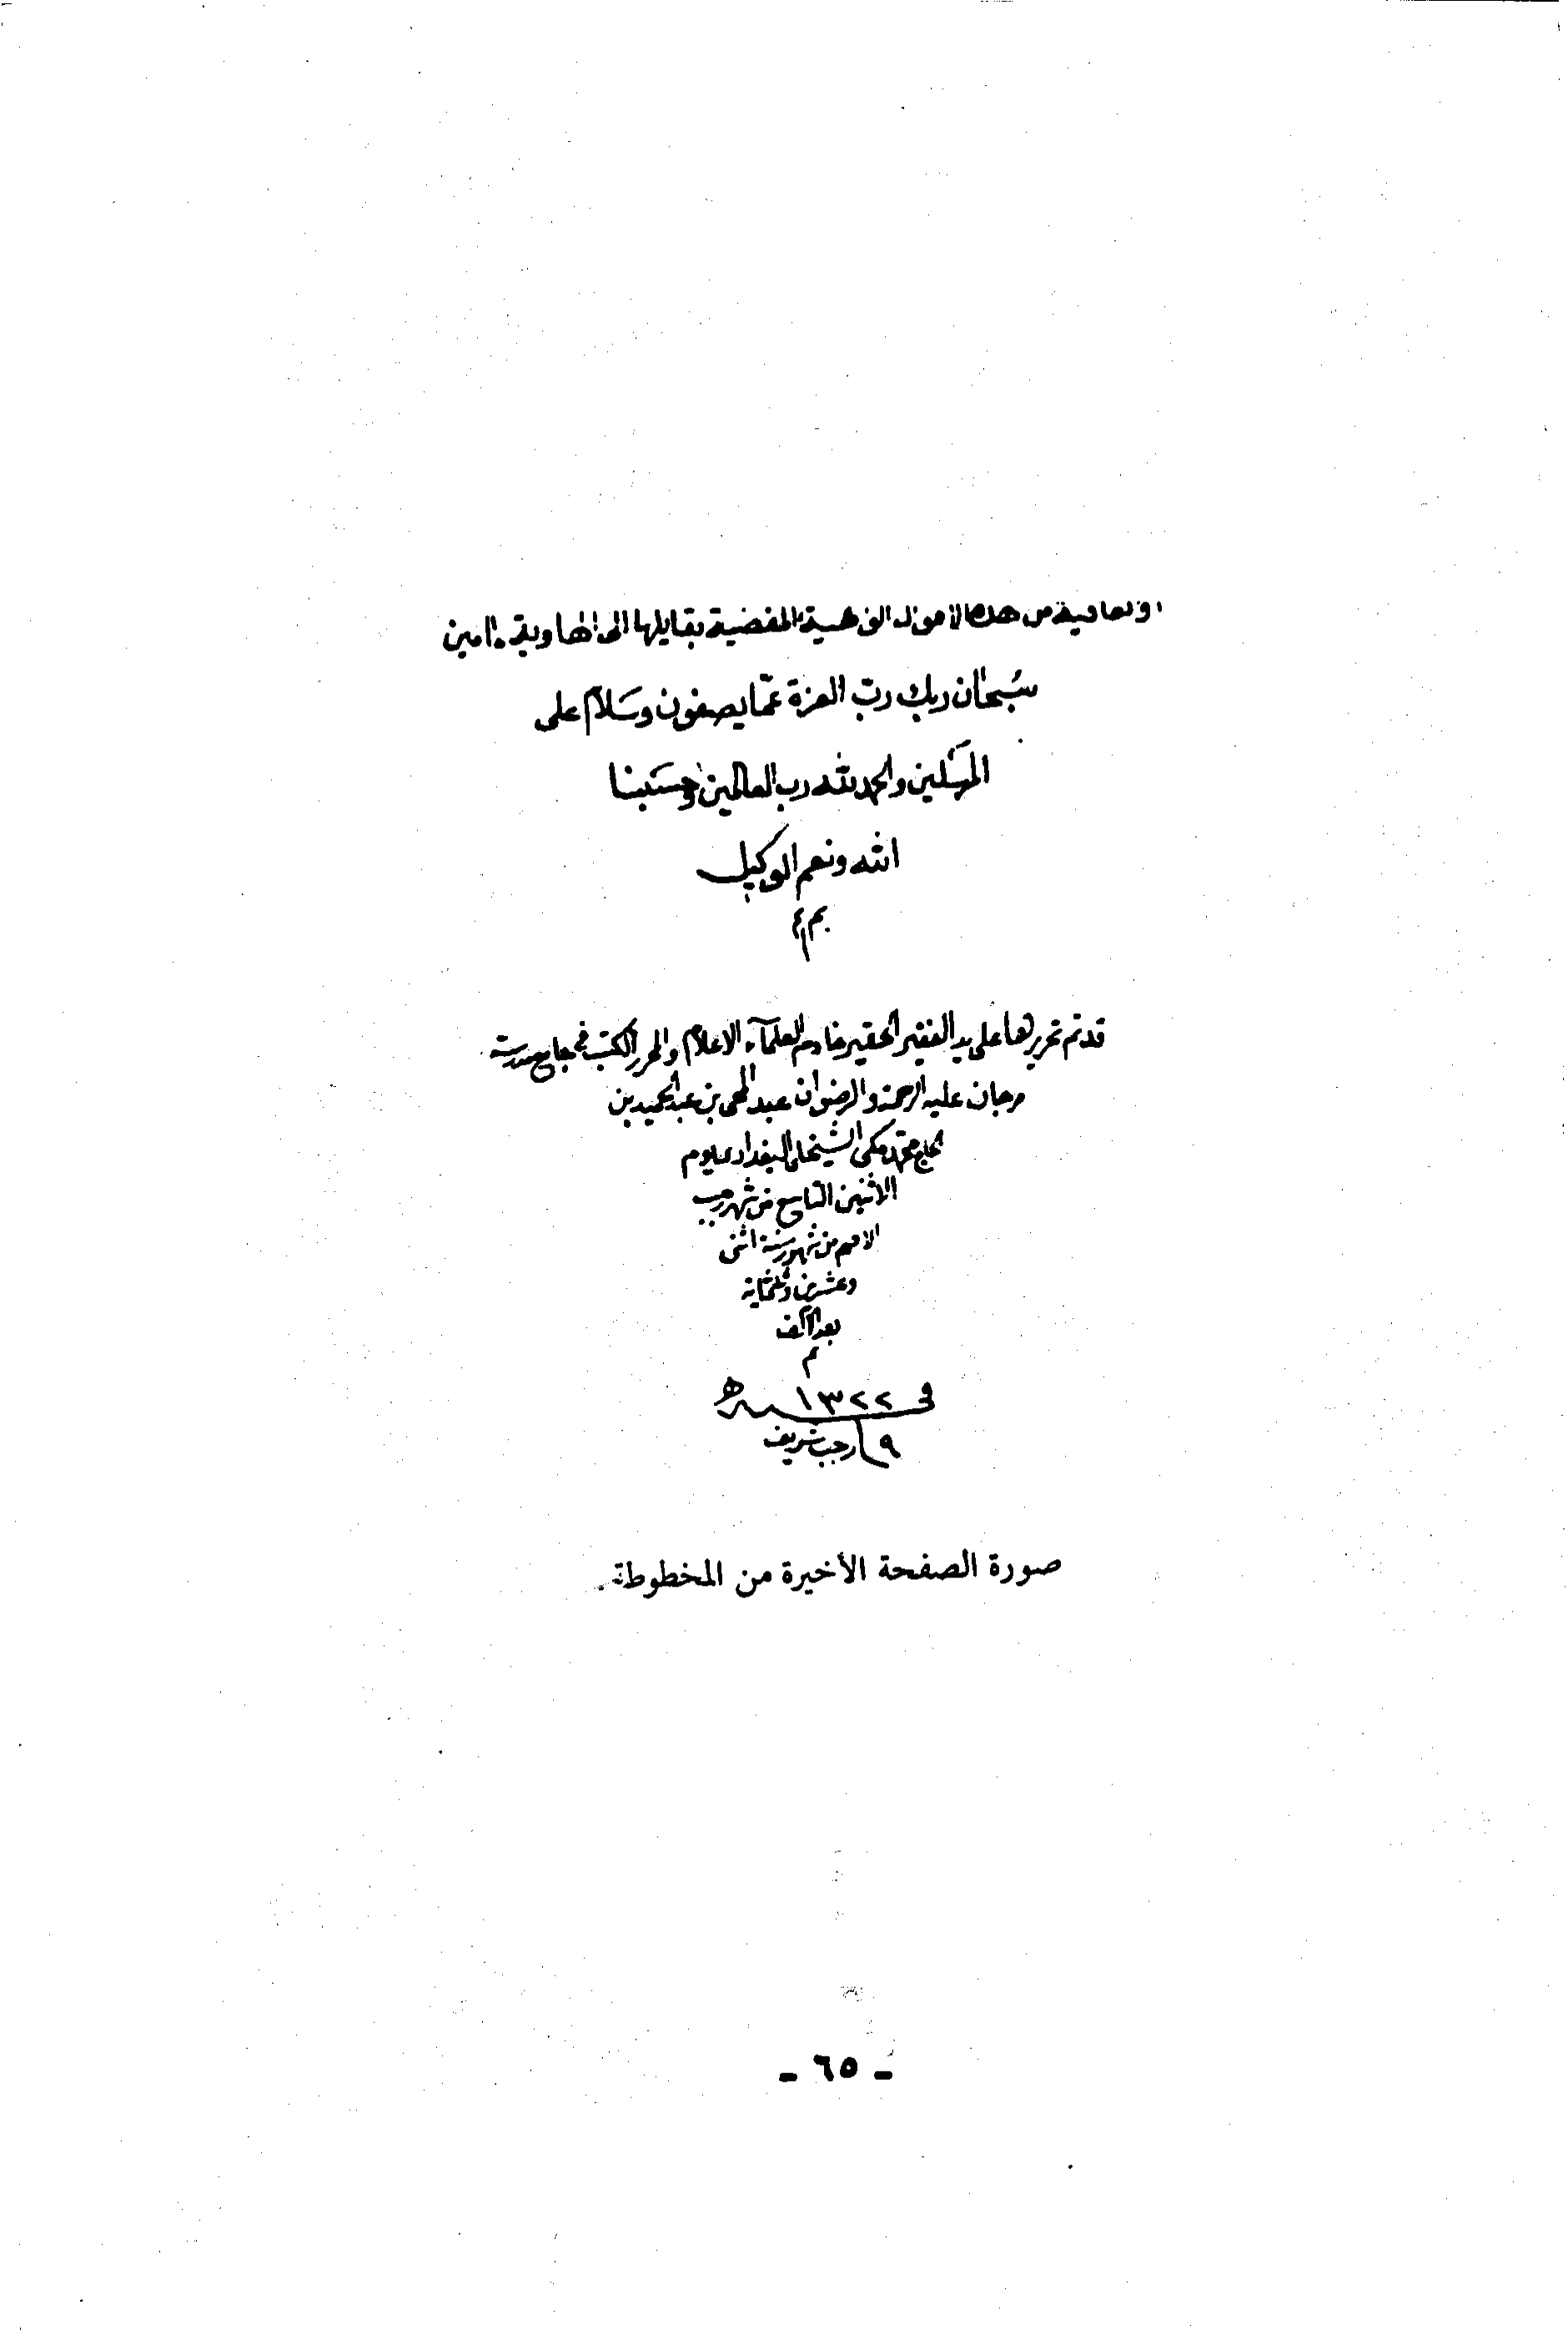 والعافية من هذه الاموال الوخيمة المفضية بقايلها الى الهاوية امين
سُبحان ربك ربّ العزة عمّا يصفون وسَلام على
المرسَلين والحمد لله رب العالمين وحسَبنا
الله ونعم الوكيل
قد تم تحريرها على يد الفقير الحقير خادم العلمآء الاعلام والمحرر الكتب في جامع مدرسة
مرجان عليه الرحمة والرضوان عبد المحى بن عبد الحميد بن
الحاج محمد مكى الشيخلى البغدادى يوم
الاثنين التاسع من شهر رجب
الاصم من شهور سنة اثنى
وعشرين وثلثماية
بعد الالف
م
في ١٣٢٢ سنه هـ
٩ رجب شريف
صورة الصفحة الأخيرة من المخطوطة.
- ٦٥ -